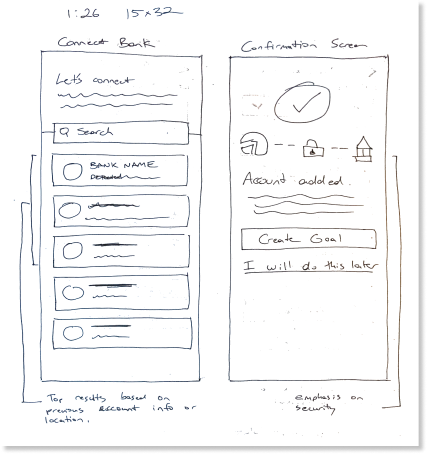 1:26 15x32
Connect Bank
Let's connect
Q Search
BANK NAME
Top results based on
previous account info or
location.
Confirmation Screen
Account added.
Create Goal
I will do this later
emphasis on
security